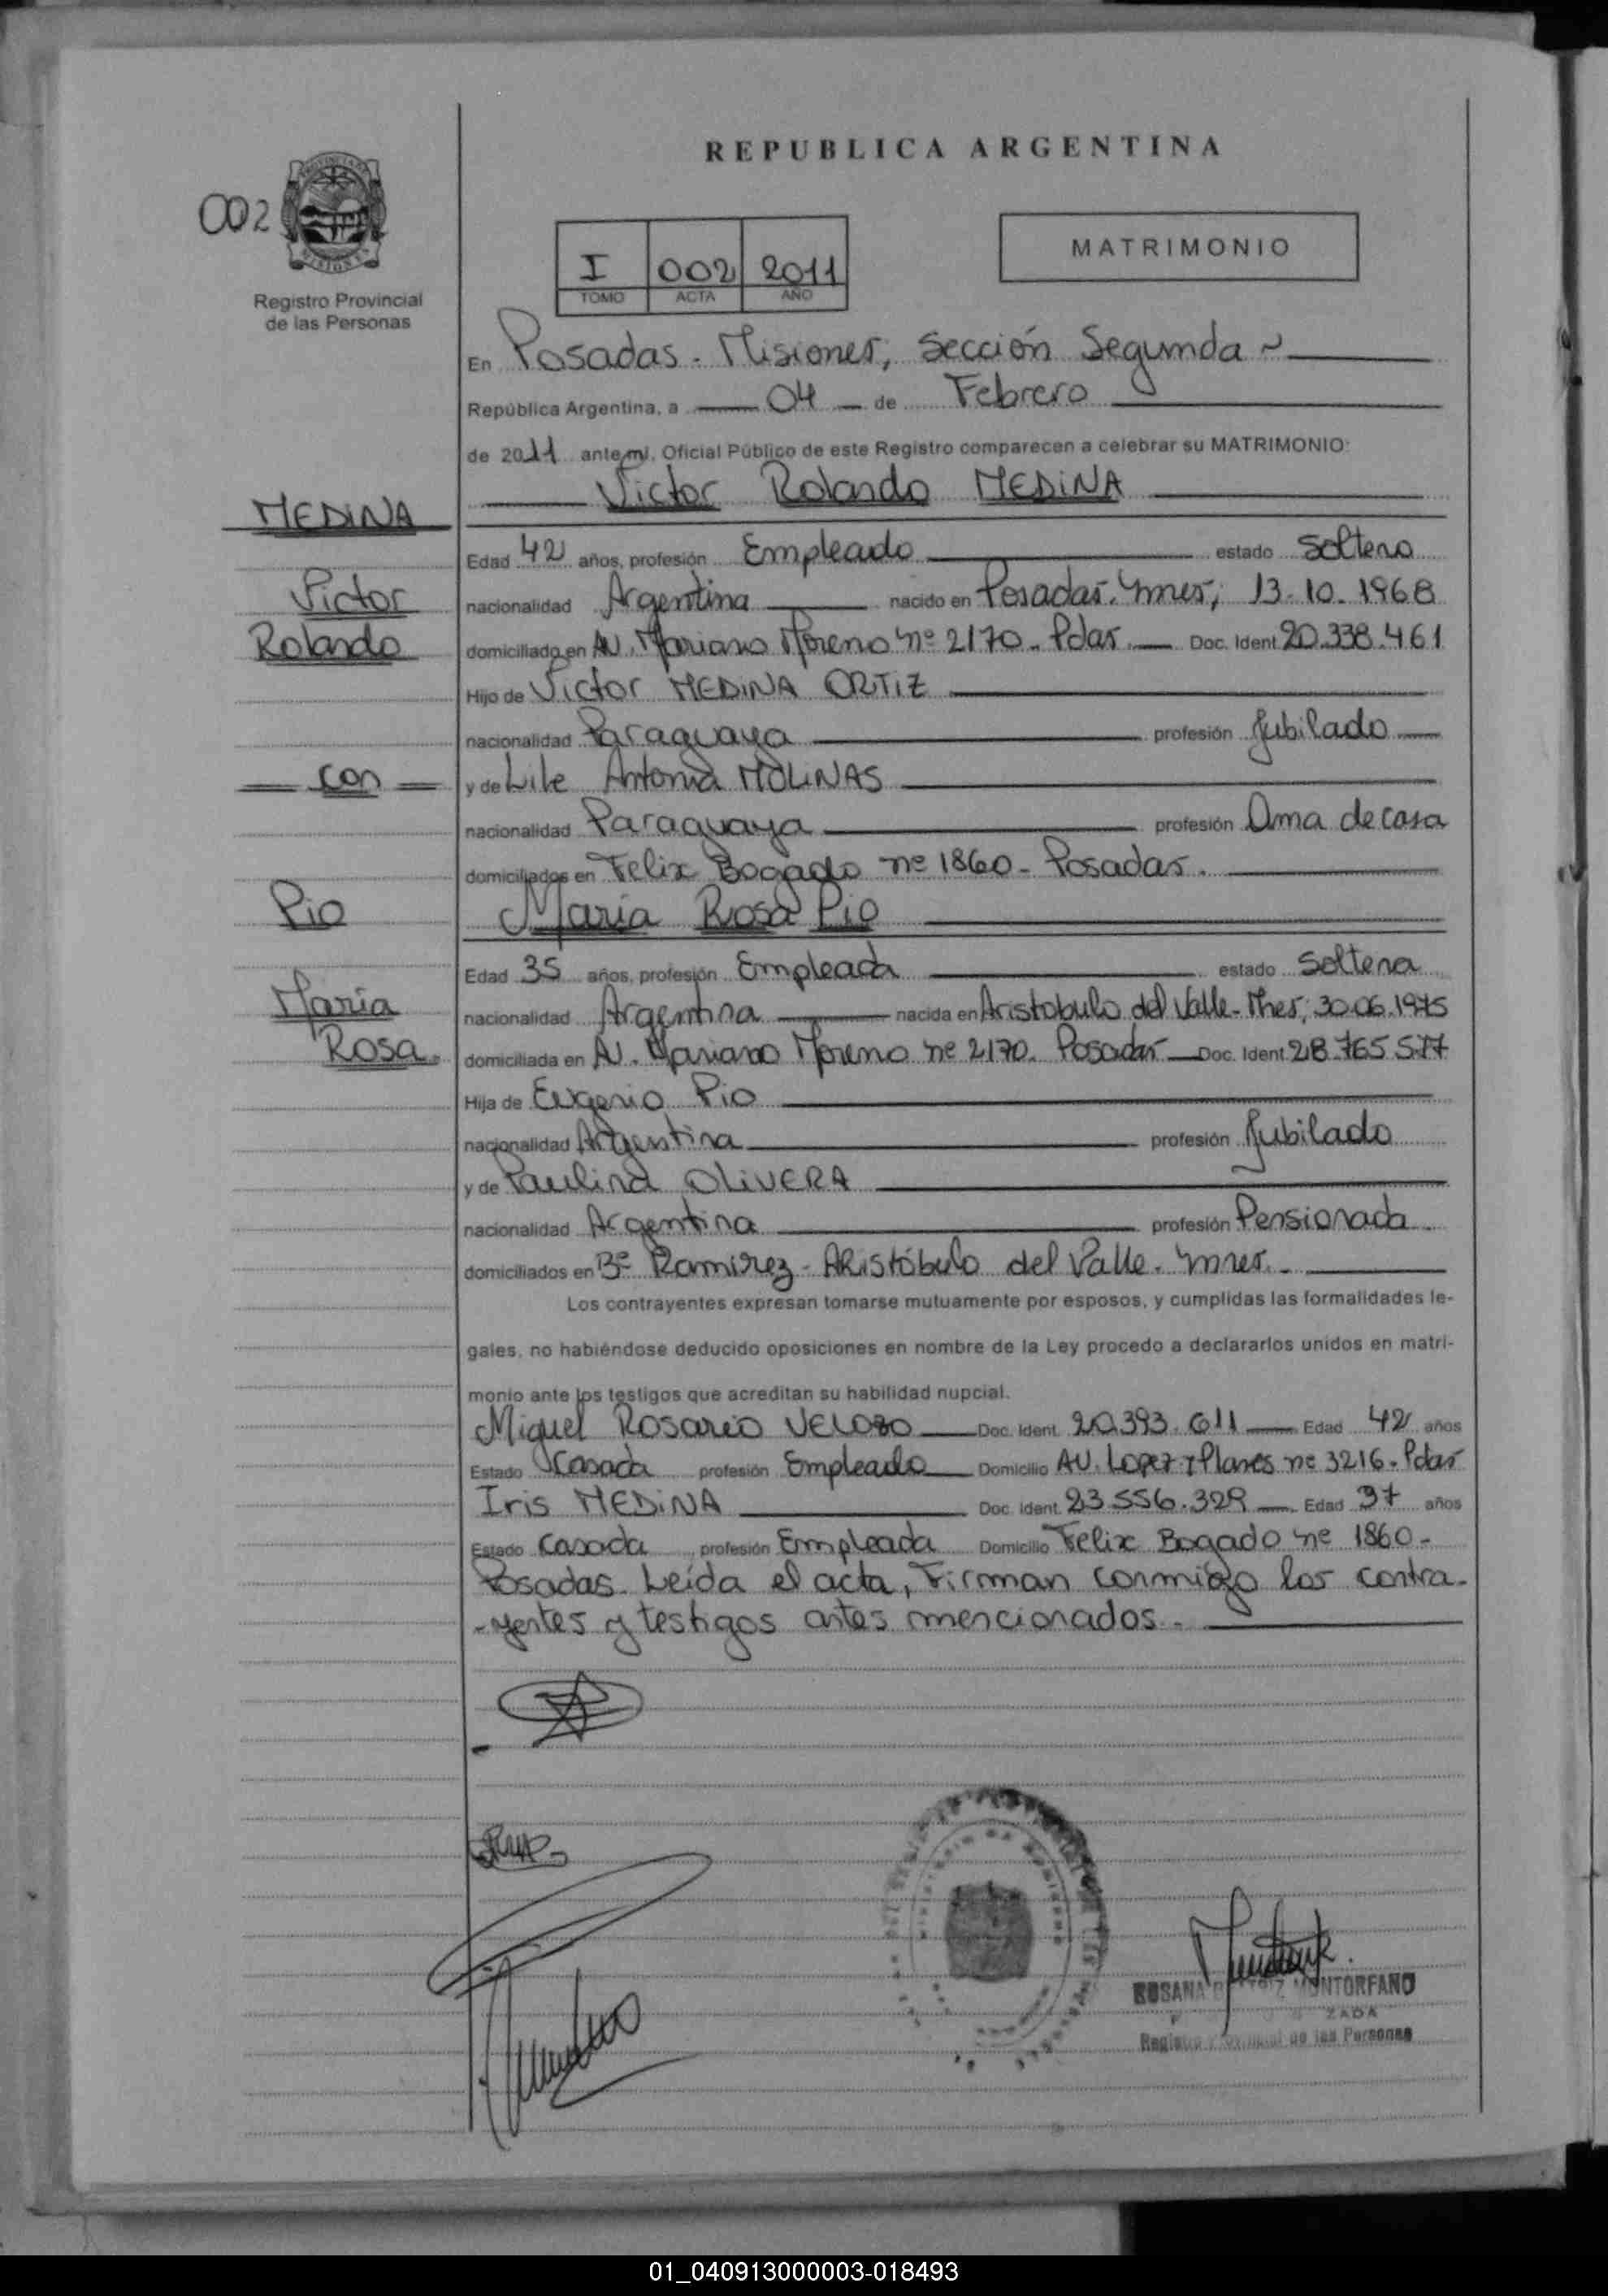 REPUBLICA ARGENTINA
002
Registro Provincial
de las Personas
I 002 2011
TOMO ACTA AÑO
MATRIMONIO
En Posadas - Misiones, Sección Segunda
República Argentina, a 04 de Febrero
de 2011 ante mí, Oficial Público de este Registro comparecen a celebrar su MATRIMONIO:
Victor Rolando MEDINA
MEDINA
Victor
Rolando
con
Pio
María
Rosa
Edad 42 años, profesión Empleado estado Soltero
nacionalidad Argentina nacido en Posadas. Mnes, 13-10-1968
domiciliado en AV. Mariano Moreno Nº 2170 - Pdas. Doc. Ident. 20.338.461
Hijo de Victor MEDINA ORTIZ
nacionalidad Paraguaya profesión Jubilado
y de Antonia MOLINAS
nacionalidad Paraguaya profesión Ama de casa
domiciliados en Felix Bogado nº 1860 - Posadas.
María Rosa Pio
Edad 35 años, profesión Empleada estado Soltera
nacionalidad Argentina nacida en Aristobulo del Valle - Mnes, 30.06.1975
domiciliada en AV. Mariano Moreno nº 2170. Posadas Doc. Ident. 28.765.577
Hija de Eugenio Pio
nacionalidad Argentina profesión Jubilado
y de Paulina OLIVERA
nacionalidad Argentina profesión Pensionada
domiciliados en Bº Ramirez - Aristóbulo del Valle. Mnes.
Los contrayentes expresan tomarse mutuamente por esposos, y cumplidas las formalidades le-
gales, no habiéndose deducido oposiciones en nombre de la Ley procedo a declararlos unidos en matri-
monio ante los testigos que acreditan su habilidad nupcial.
Miguel Rosario VELOZO Doc. Ident. 20.393.611 Edad 42 años
Estado Casada profesión Empleado Domicilio AV. Lopez y Planes nº 3216 - Pdas
Iris MEDINA Doc. Ident. 23.556.329 Edad 37 años
Estado Casada profesión Empleada Domicilio Felix Bogado nº 1860 -
Posadas. Leída el acta, Firman conmigo los contra-
-yentes y testigos antes mencionados.-
ROSANA MONTORFANO
Registro Provincial de las Personas
01_040913000003-018493